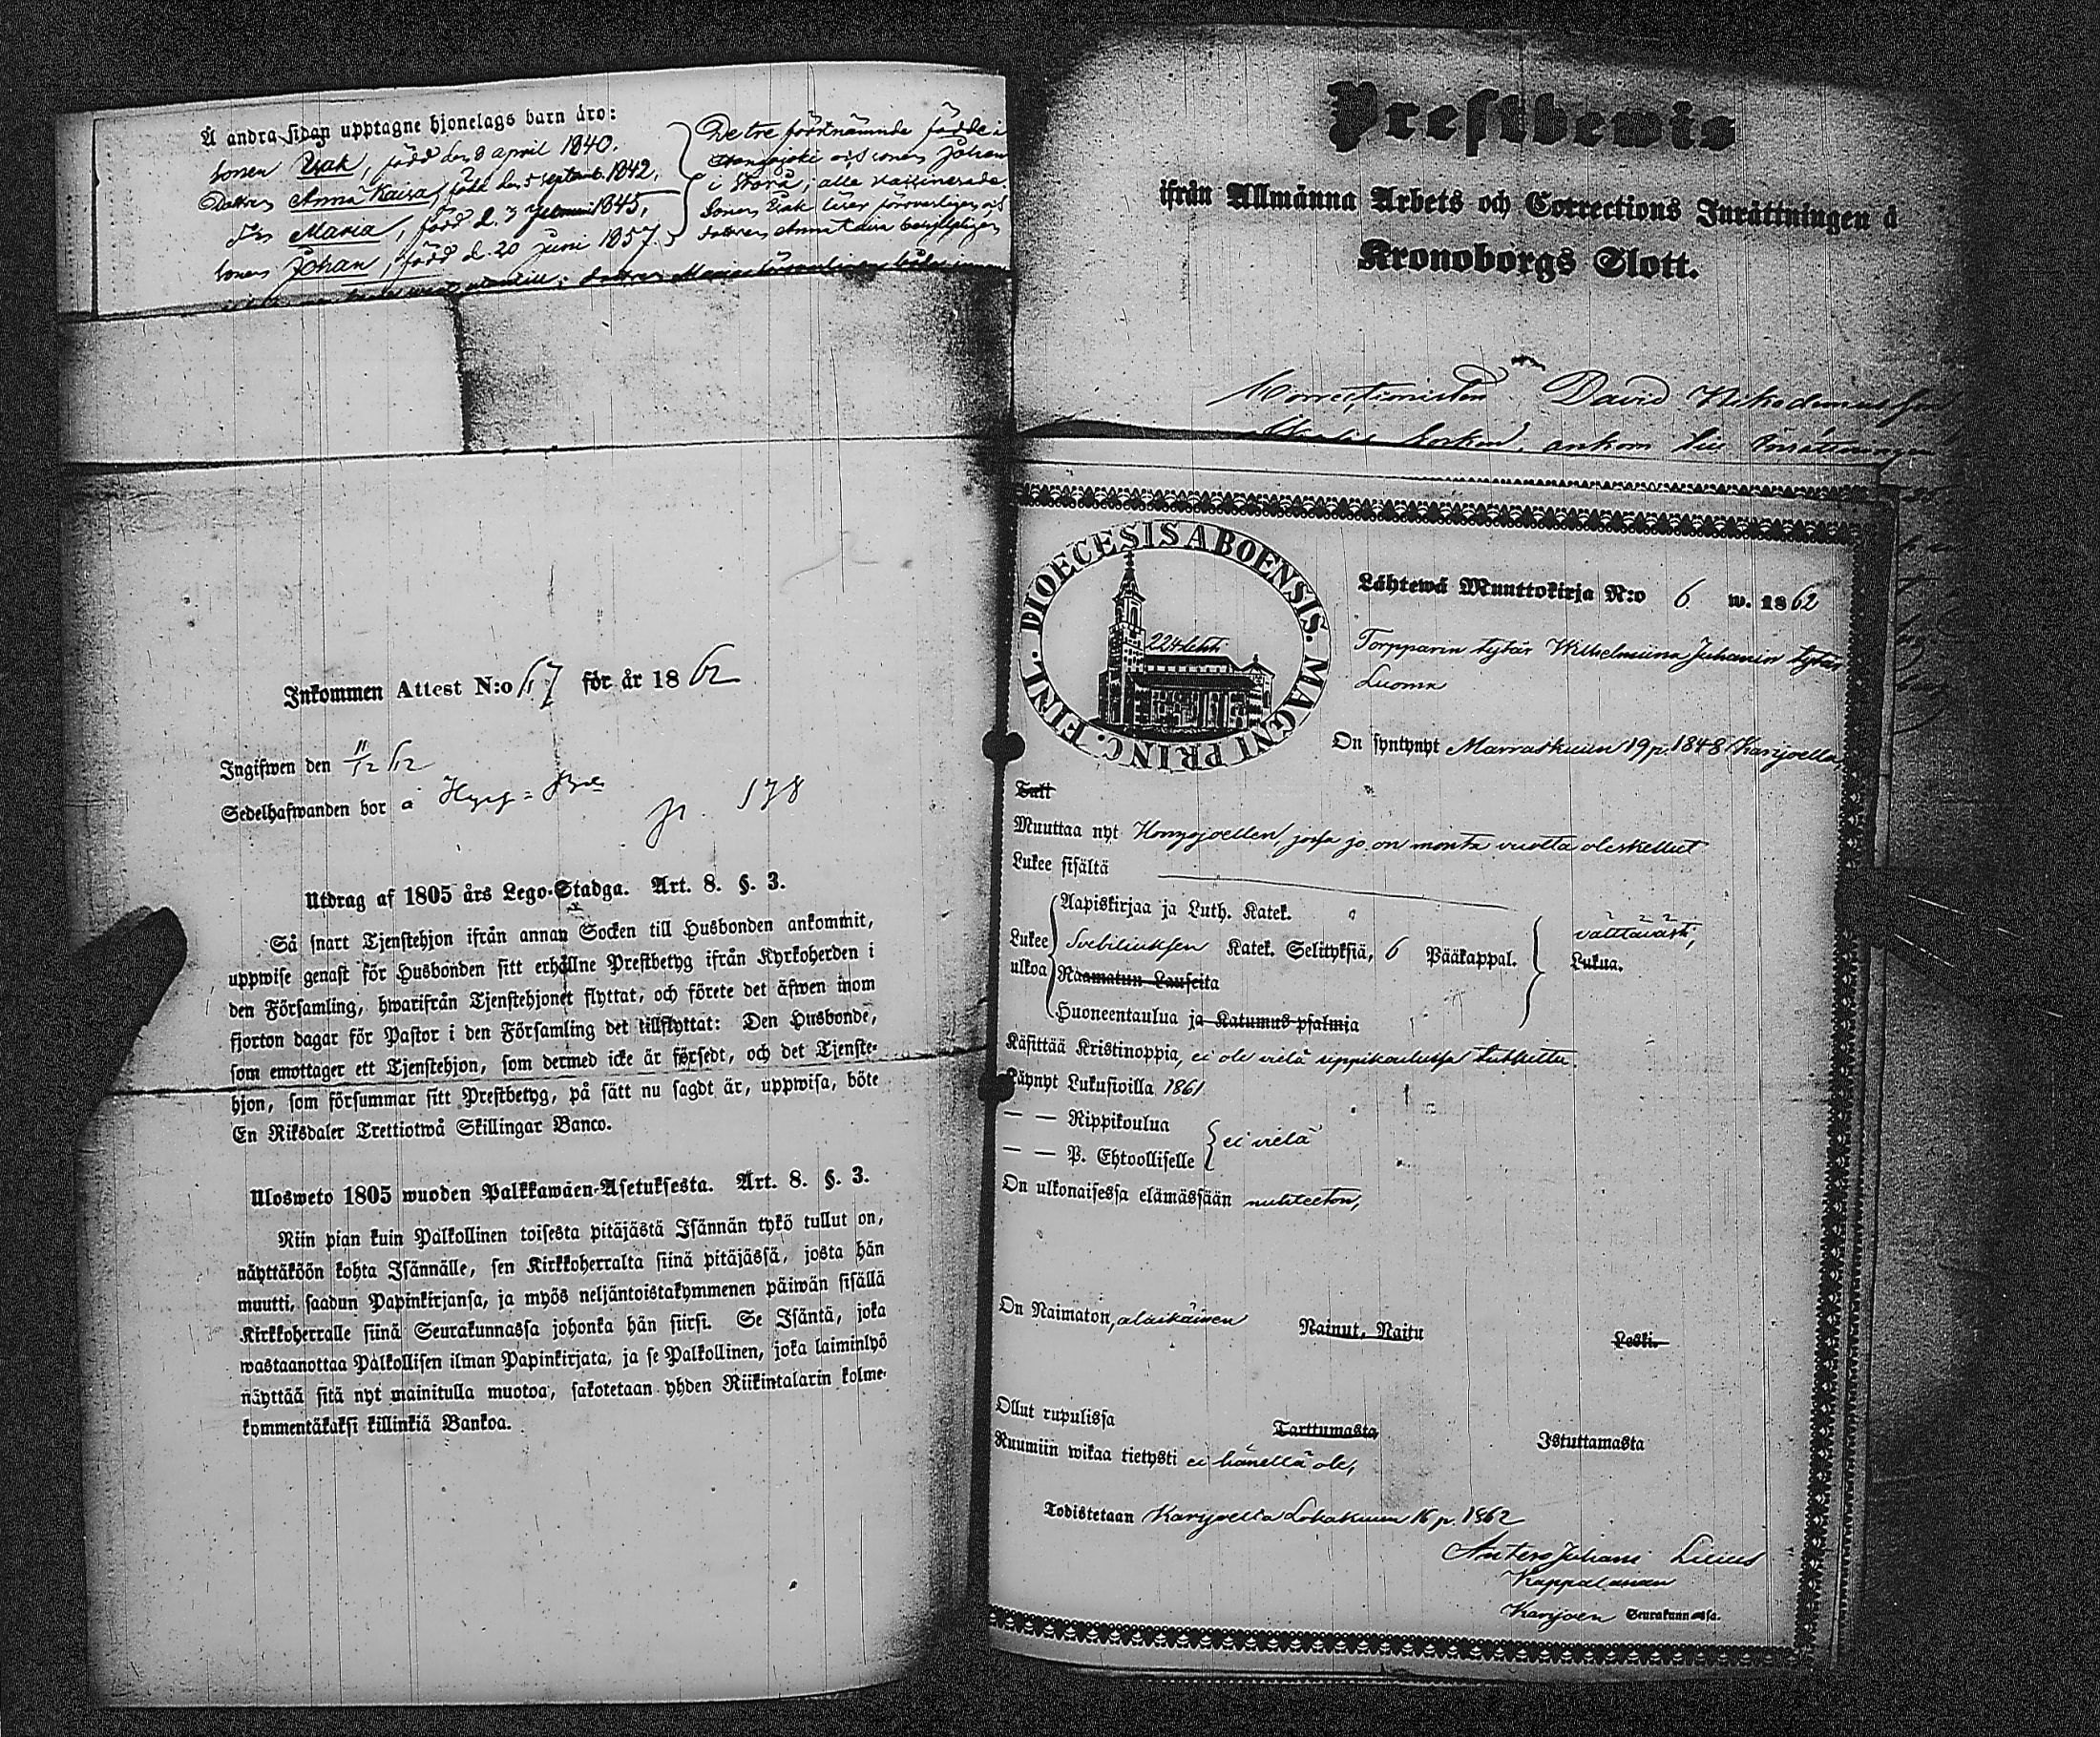 Å andra sidan upptagne hjonelags barn äro:
Sonen Isak, född den 8 april 1840.
Dottren Anna Kaisa, född den 5 septemb. 1842,
Maria, född d. 3 1845,
Sonen Johan, född d. 20 juni 1857.
De tre förstnämnde födde i
och sonen Johan
i Storå; alla vaccinerade.
Sonen Isak läser försvarligen och
dottren Anna Kaisa
dottren Maria
Inkommen Attest N:o 67 för år 1862
Ingifwen den 11/12 62
Sedelhafwanden bor å
p. 178
Utdrag af 1805 års Lego-Stadga. Art. 8. §. 3.
Så snart Tjenstehjon ifrån annan Socken till Husbonden ankommit,
uppwise genast för Husbonden sitt erhållne Prestbetyg ifrån Kyrkoherden i
den Församling, hwarifrån Tjenstehjonet flyttat, och förete det äfwen inom
fjorton dagar för Pastor i den Församling det tillflyttat: Den Husbonde,
som emottager ett Tjenstehjon, som dermed icke är försedt, och det Tjenste-
hjon, som försummar sitt Prestbetyg, på sätt nu sagdt är, uppwisa, böte
En Riksdaler Trettiotwå Skillingar Banco.
Ulosweto 1805 wuoden Palkkawäen-Asetuksesta. Art. 8. §. 3.
Niin pian kuin Palkollinen toisesta pitäjästä Isännän tykö tullut on,
näyttäköön kohta Isännälle, sen Kirkkoherralta siinä pitäjässä, josta hän
muutti, saadun Papinkirjansa, ja myös neljäntoistakymmenen päiwän sisällä
Kirkkoherralle siinä Seurakunnassa johonka hän siirsi. Se Isäntä, joka
wastaanottaa Palkollisen ilman Papinkirjata, ja se Palkollinen, joka laiminlyö
näyttää sitä nyt mainitulla muotoa, sakotetaan yhden Riikintalarin kolme-
kymmentäkaksi killinkiä Bankoa.
Prestbewis
ifrån Allmänna Arbets och Corrections Inrättningen å
Kronoborgs Slott.
Correctionisten David Nikodemusson
Socken, ankom till Inrättningen
DIOECESIS ABOENSIS. MAGNI PRINC. FINL.
224 lehti
Lähtewä Muuttokirja N:o 6 w. 1862
Torpparin tytär Wilhelmiina Juhanin tytär
Luoma
On syntynyt Marraskuun 19 p. 1848 Karijoella
Tull
Muuttaa nyt Honggoellen, jossa jo on monta vuotta oleskellut
Lukee sisältä
Lukee ulkoa
Aapiskirjaa ja Luth. Katek.
Svebiliuksen Katek. Selityksiä, 6 Pääkappal.
Raamatun Lauseita
Huoneentaulua ja Katumus-psalmia
välttävästi,
Lukua.
Käsittää Kristinoppia, ei ole vielä rippikoulussa tutkittu.
Käynyt Lukusioilla 1861
— — Rippikoulua
— — P. Ehtoolliselle
ei vielä
On ulkonaisessa elämässään nuhteeton,
On Naimaton, alaikäinen Nainut, Naitu Leski.
Ollut rupulissa Tarttumasta Istuttamasta
Ruumiin wikaa tietysti ei hänellä ole,
Todistetaan Karijoella Lokakuun 16 p. 1862
Antero Juhani Lilius
Kappalainen
Karijoen Seurakunnassa.